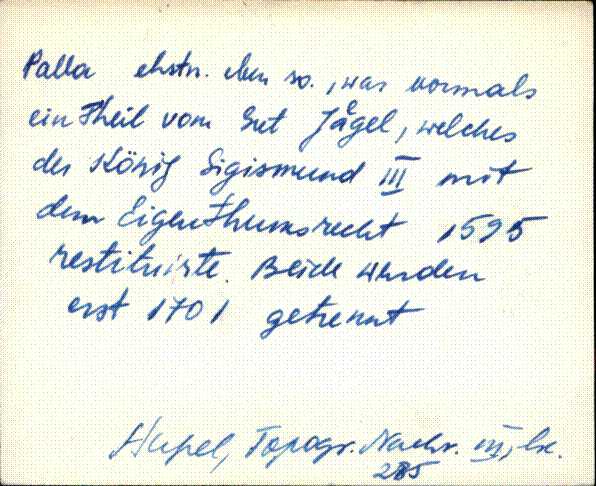 Palla ehstn. eben so., was vormals
ein Theil vom Gut Jägel, welches
der König Sigismund III mit
dem Eigenthumsrecht 1595
restituirte. Beide wurden
erst 1701 getrennt
Hupel, Topogr. Nachr. III,
285